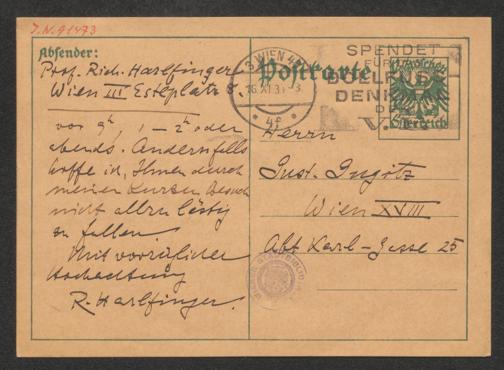 J.N. 91473
Absender:
Prof. Rich. Harlfinger
Wien III Esteplatz 8.
vor 9h, 1-2h oder
abends. Andernfalls
hoffe ich, Ihnen durch
meinen kurzen Besuch
nicht allzu lästig
zu fallen.
Mit vorzüglicher
Hochachtung
R. Harlfinger.
Postkarte
3 WIEN
SPENDET
FÜR
DOLLFUSS
DENK
V.F.
Österreich
Herrn
Gust. Jugitz
Wien XVIII
Abt Karl-Gasse 25